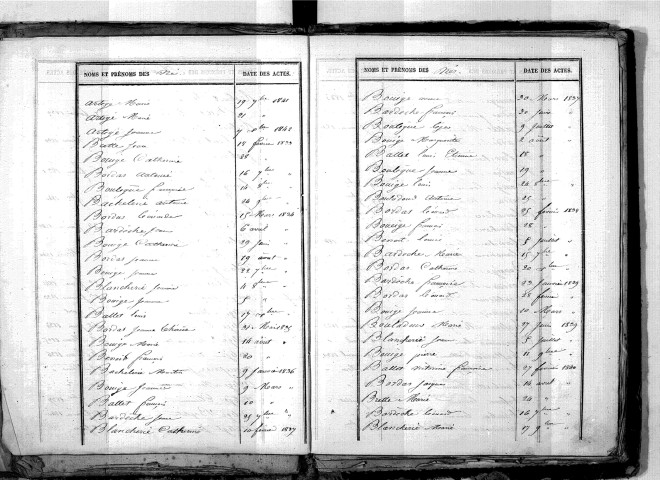 NOMS ET PRÉNOMS DES Nés DATE DES ACTES.
Artige Marie 19 7bre 1841
Artige Marie 21 "
Artige Jeanne 1842
Brette Jean 18 février 1833
Bouige Catherine 28 "
Bordas Antoine 16 7bre "
Boutegue Françoise 14 8bre "
Bachelerie Antoine 14 9bre "
Bordas Léonarde 15 Mars 1834
Bardoche Jean 6 avril "
Bouige Catherine 29 Juin "
Bordas Jeanne 19 août "
Bouige Jeanne 22 7bre "
Blancherie Jeanne 4 8bre "
Bouige Jeanne 5 "
Ballet Louis 17 "
Bordas Jeanne 21 Mars 1835
Bouige Marie 14 août "
Benoit François 20 "
Bachelerie Martin 9 Janvier 1836
Bouige 9 Mars "
Ballet François 10 "
Bardoche Jean 25 7bre "
Blancherie Catherine 10 février 1837
NOMS ET PRÉNOMS DES Nés. DATE DES ACTES.
Bouige 30 Mars 1837
Bardoche François 30 Juin "
Boutegue 9 Juillet "
Bouige Marguerite 2 août "
Ballet Louis Etienne 18 "
Boutegue Jeanne 19 "
Bouige Louis 24 8bre "
Antoine 25 "
Bordas Léonard 25 février 1838
Bouige François 28 "
Benoit Louis 5 Juillet "
Bardoche Marie 15 7bre "
Bordas Catherine 30 "
Bardoche Françoise 23 Janvier 1839
Bordas Léonard 28 février "
Bouige Jeanne 10 Mars "
Marie 27 Juin 1839
Blancherie Jean 5 Juillet "
Bouige pierre 11 9bre "
Ballet Françoise 27 février 1840
Bordas Jacques 14 août "
Brette Marie 24 "
Bardoche Léonard 16 7bre "
Blancherie Marie 17 9bre "